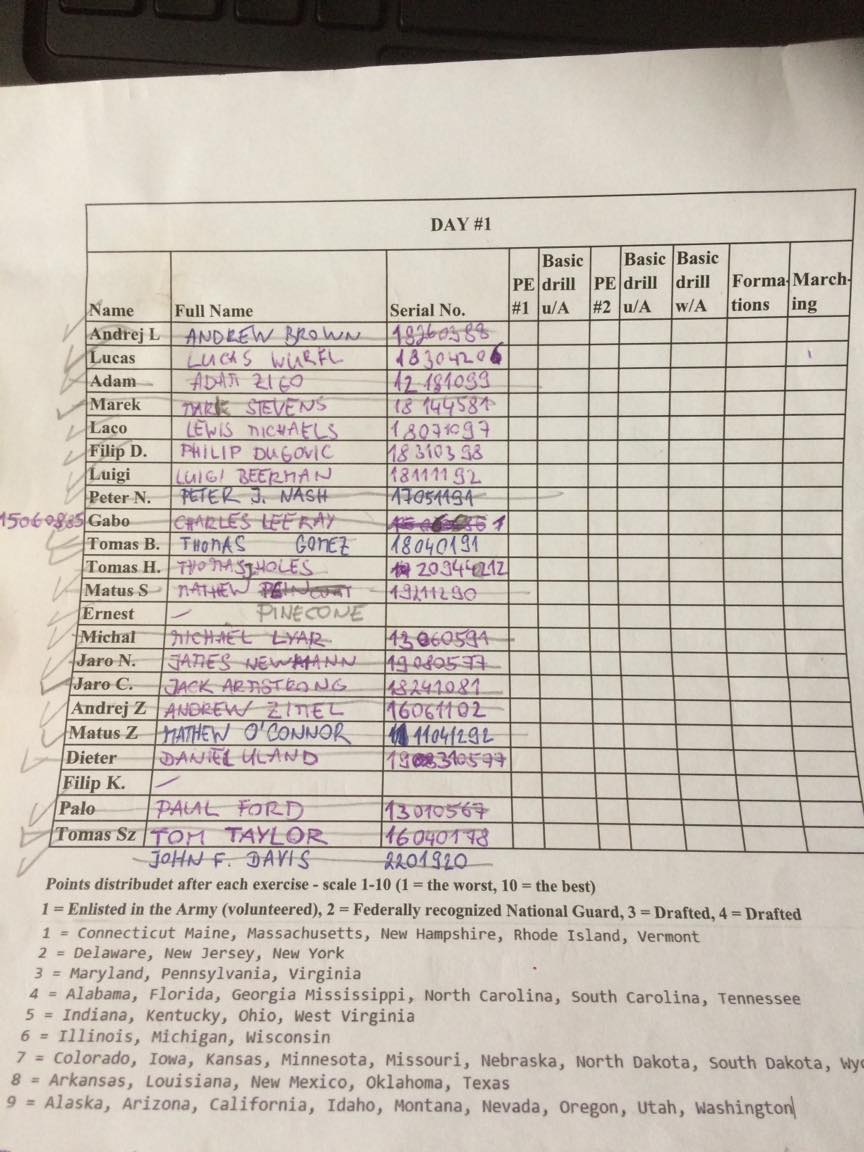 DAY #1
Name Full Name Serial No. PE #1 Basic drill u/A PE #2 Basic drill u/A Basic drill w/A Forma-tions March-ing
Andrej L ANDREW BROWN 18260388
Lucas LUCAS WURFL 18304206
Adam ADAM ZIGO 12181099
Marek MARK STEVENS 18144581
Laco LEWIS MICHAELS 18071097
Filip D. PHILIP DUGOVIC 18310398
Luigi LUIGI BEERMAN 18111192
Peter N. PETER J. NASH 17051191
15060885 Gabo CHARLES LEE RAY
Tomas B. THOMAS GOMEZ 18040191
Tomas H. THOMAS HOLES 20944212
Matus S MATHEW 19211290
Ernest — PINECONE
Michal MICHAEL LYAR 13060591
Jaro N. JAMES NEWMANN 19080577
Jaro C. JACK ARMSTRONG 18241081
Andrej Z ANDREW ZIMEL 16061102
Matus Z MATHEW O'CONNOR 11041292
Dieter DANIEL ULAND
Filip K. —
Palo PAUL FORD 13010567
Tomas Sz TOM TAYLOR 16040178
JOHN F. DAVIS 2201920
Points distribudet after each exercise - scale 1-10 (1 = the worst, 10 = the best)
1 = Enlisted in the Army (volunteered), 2 = Federally recognized National Guard, 3 = Drafted, 4 = Drafted
1 = Connecticut Maine, Massachusetts, New Hampshire, Rhode Island, Vermont
2 = Delaware, New Jersey, New York
3 = Maryland, Pennsylvania, Virginia
4 = Alabama, Florida, Georgia Mississippi, North Carolina, South Carolina, Tennessee
5 = Indiana, Kentucky, Ohio, West Virginia
6 = Illinois, Michigan, Wisconsin
7 = Colorado, Iowa, Kansas, Minnesota, Missouri, Nebraska, North Dakota, South Dakota, Wyo
8 = Arkansas, Louisiana, New Mexico, Oklahoma, Texas
9 = Alaska, Arizona, California, Idaho, Montana, Nevada, Oregon, Utah, Washington